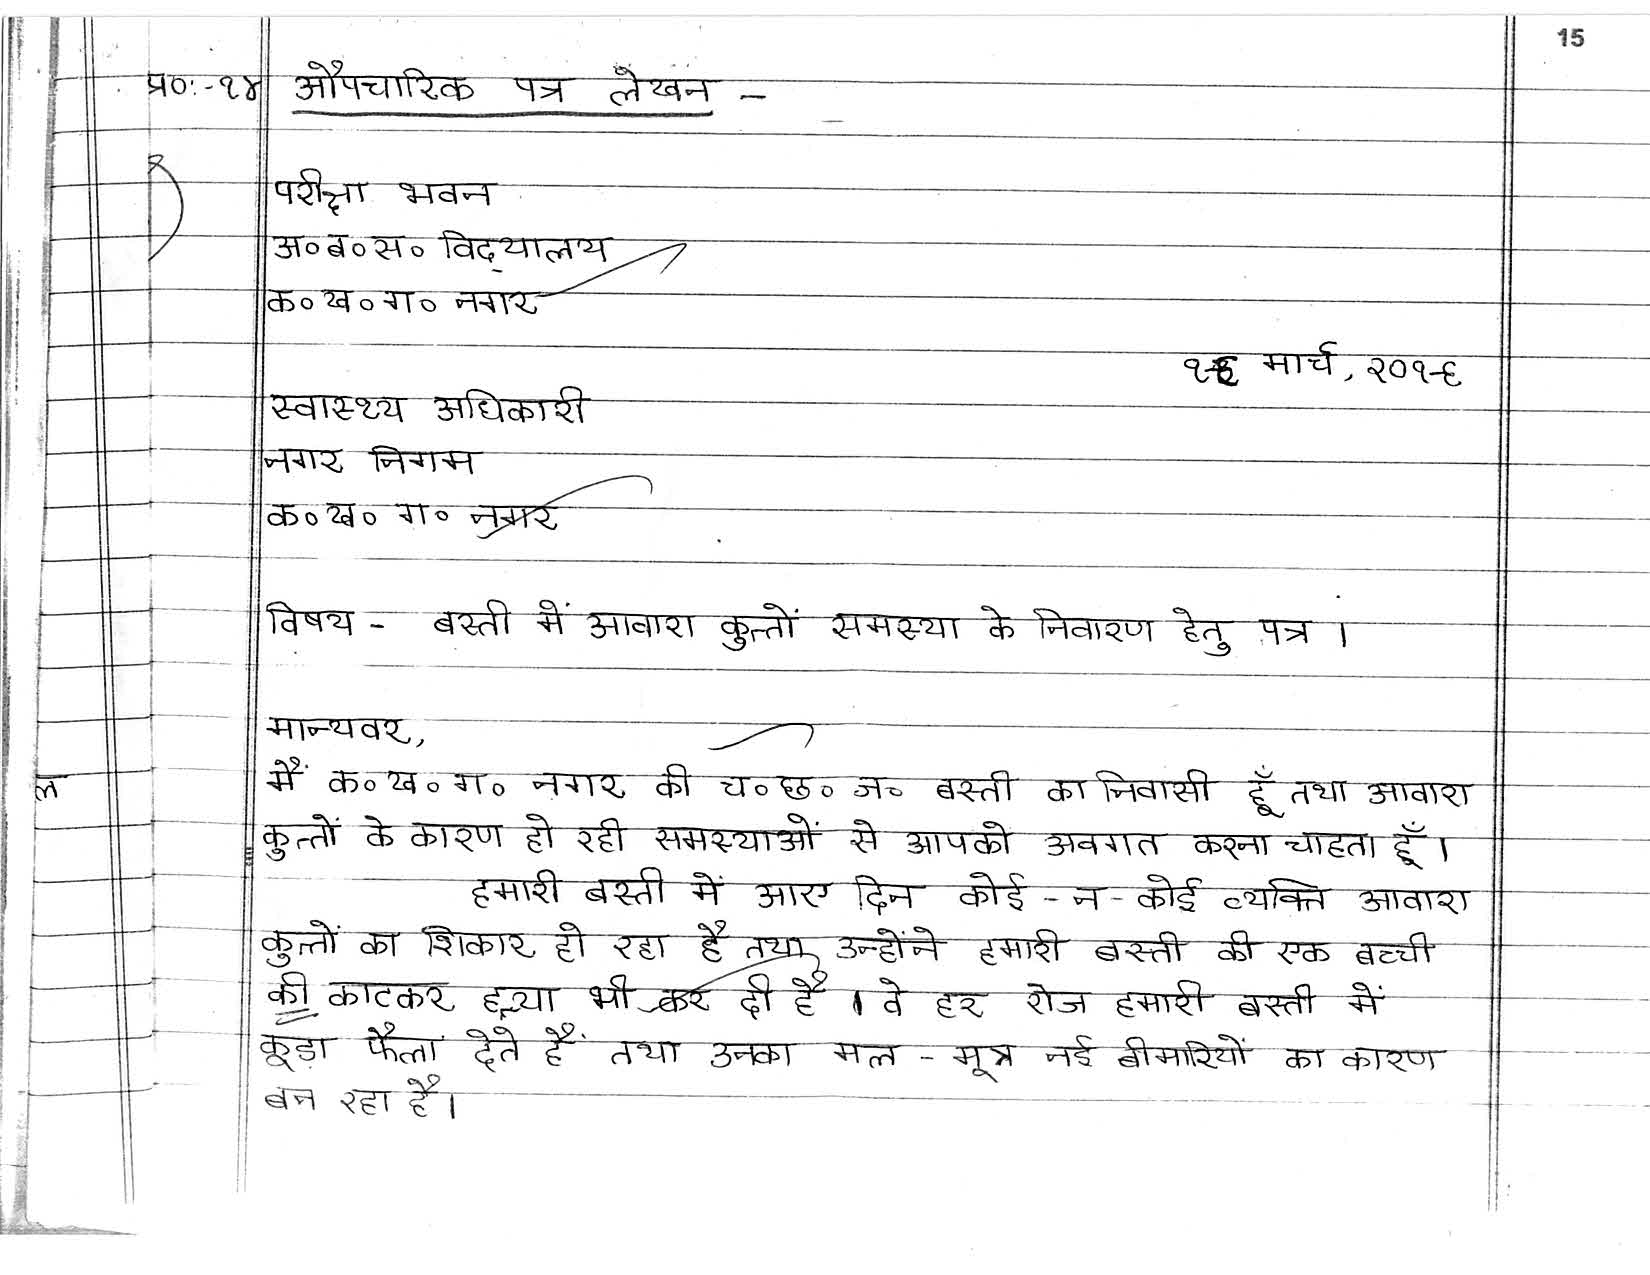 15
प्र०:-१४ औपचारिक पत्र लेखन -
परीक्षा भवन
अ०ब०स० विद्यालय
क०ख०ग० नगर
मार्च, २०१६
स्वास्थ्य अधिकारी
नगर निगम
क०ख० ग० नगर
विषय - बस्ती में आवारा कुत्तों समस्या के निवारण हेतु पत्र ।
मान्यवर,
मैं क०ख० ग० नगर की च०छ० ज० बस्ती का निवासी हूँ तथा आवारा
ल
कुत्तों के कारण हो रही समस्याओं से आपको अवगत करना चाहता हूँ।
हमारी बस्ती में आए दिन कोई - न - कोई व्यक्ति आवारा
कुत्तों का शिकार हो रहा है तथा उन्होंने हमारी बस्ती की एक बच्ची
की काटकर हत्या भी कर दी है । वे हर रोज हमारी बस्ती में
कूड़ा फैला देते हैं तथा उनका मल - मूत्र नई बीमारियों का कारण
बन रहा है।